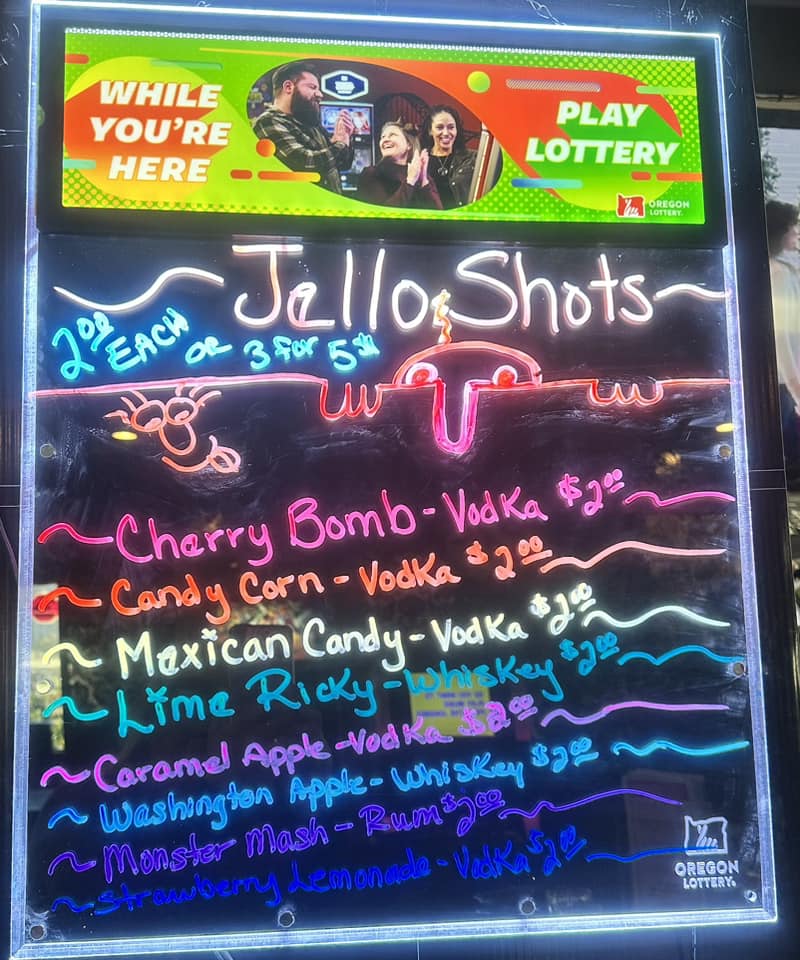 WHILE
YOU'RE
HERE
PLAY
LOTTERY
OREGON
LOTTERY.
Jello Shots
2.00 EACH or 3 for 5.00
~Cherry Bomb - Vodka $2.00
~Candy Corn - Vodka $2.00
~Mexican Candy - Vodka $2.00
~Lime Ricky - Whiskey $2.00
~Caramel Apple - Vodka $2.00
~Washington Apple - Whiskey $2.00
~Monster Mash - Rum $2.00
~Strawberry Lemonade - Vodka $2.00
OREGON
LOTTERY.